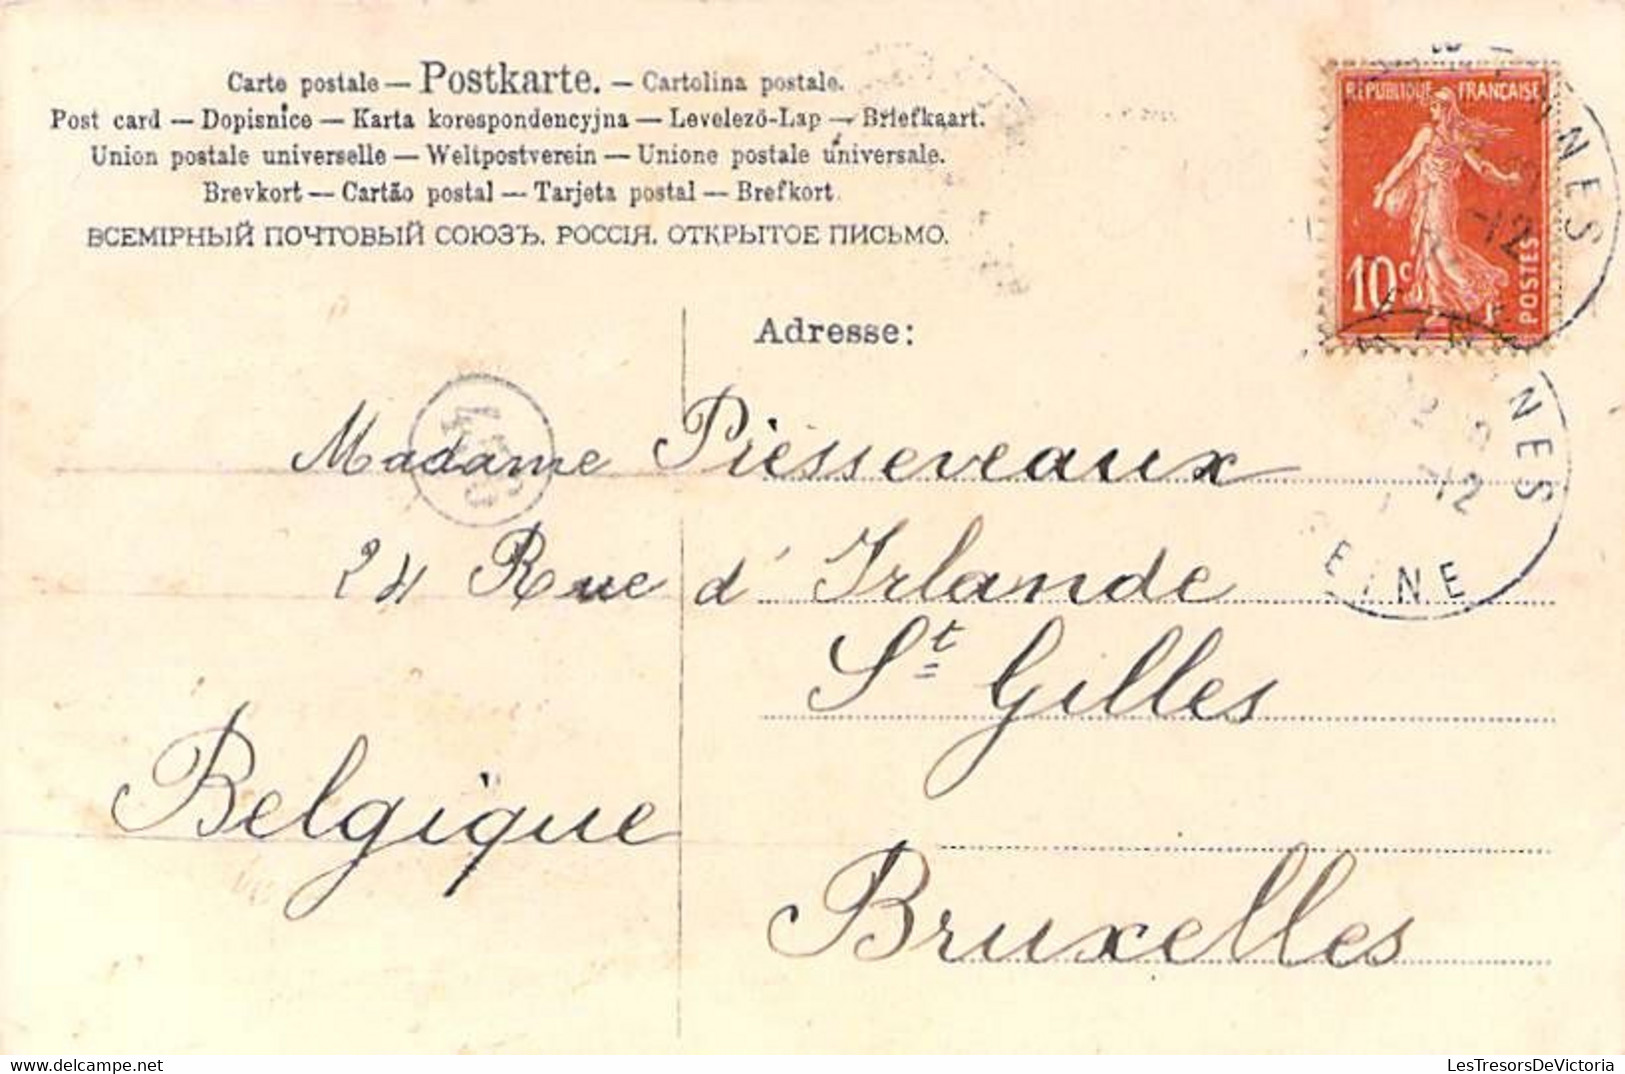 Carte postale — Postkarte. — Cartolina postale.
Post card — Dopisnice — Karta korespondencyjna — Levelező-Lap — Briefkaart.
Union postale universelle — Weltpostverein — Unione postale universale.
Brevkort — Cartão postal — Tarjeta postal — Brefkort.
ВСЕМІРНЫЙ ПОЧТОВЫЙ СОЮЗЪ. РОССІЯ. ОТКРЫТОЕ ПИСЬМО.
REPUBLIQUE FRANÇAISE
10c
POSTES
Adresse:
Madame Piesseveaux
24 Rue d'Irlande
St Gilles
Belgique
Bruxelles
LesTresorsDeVictoria